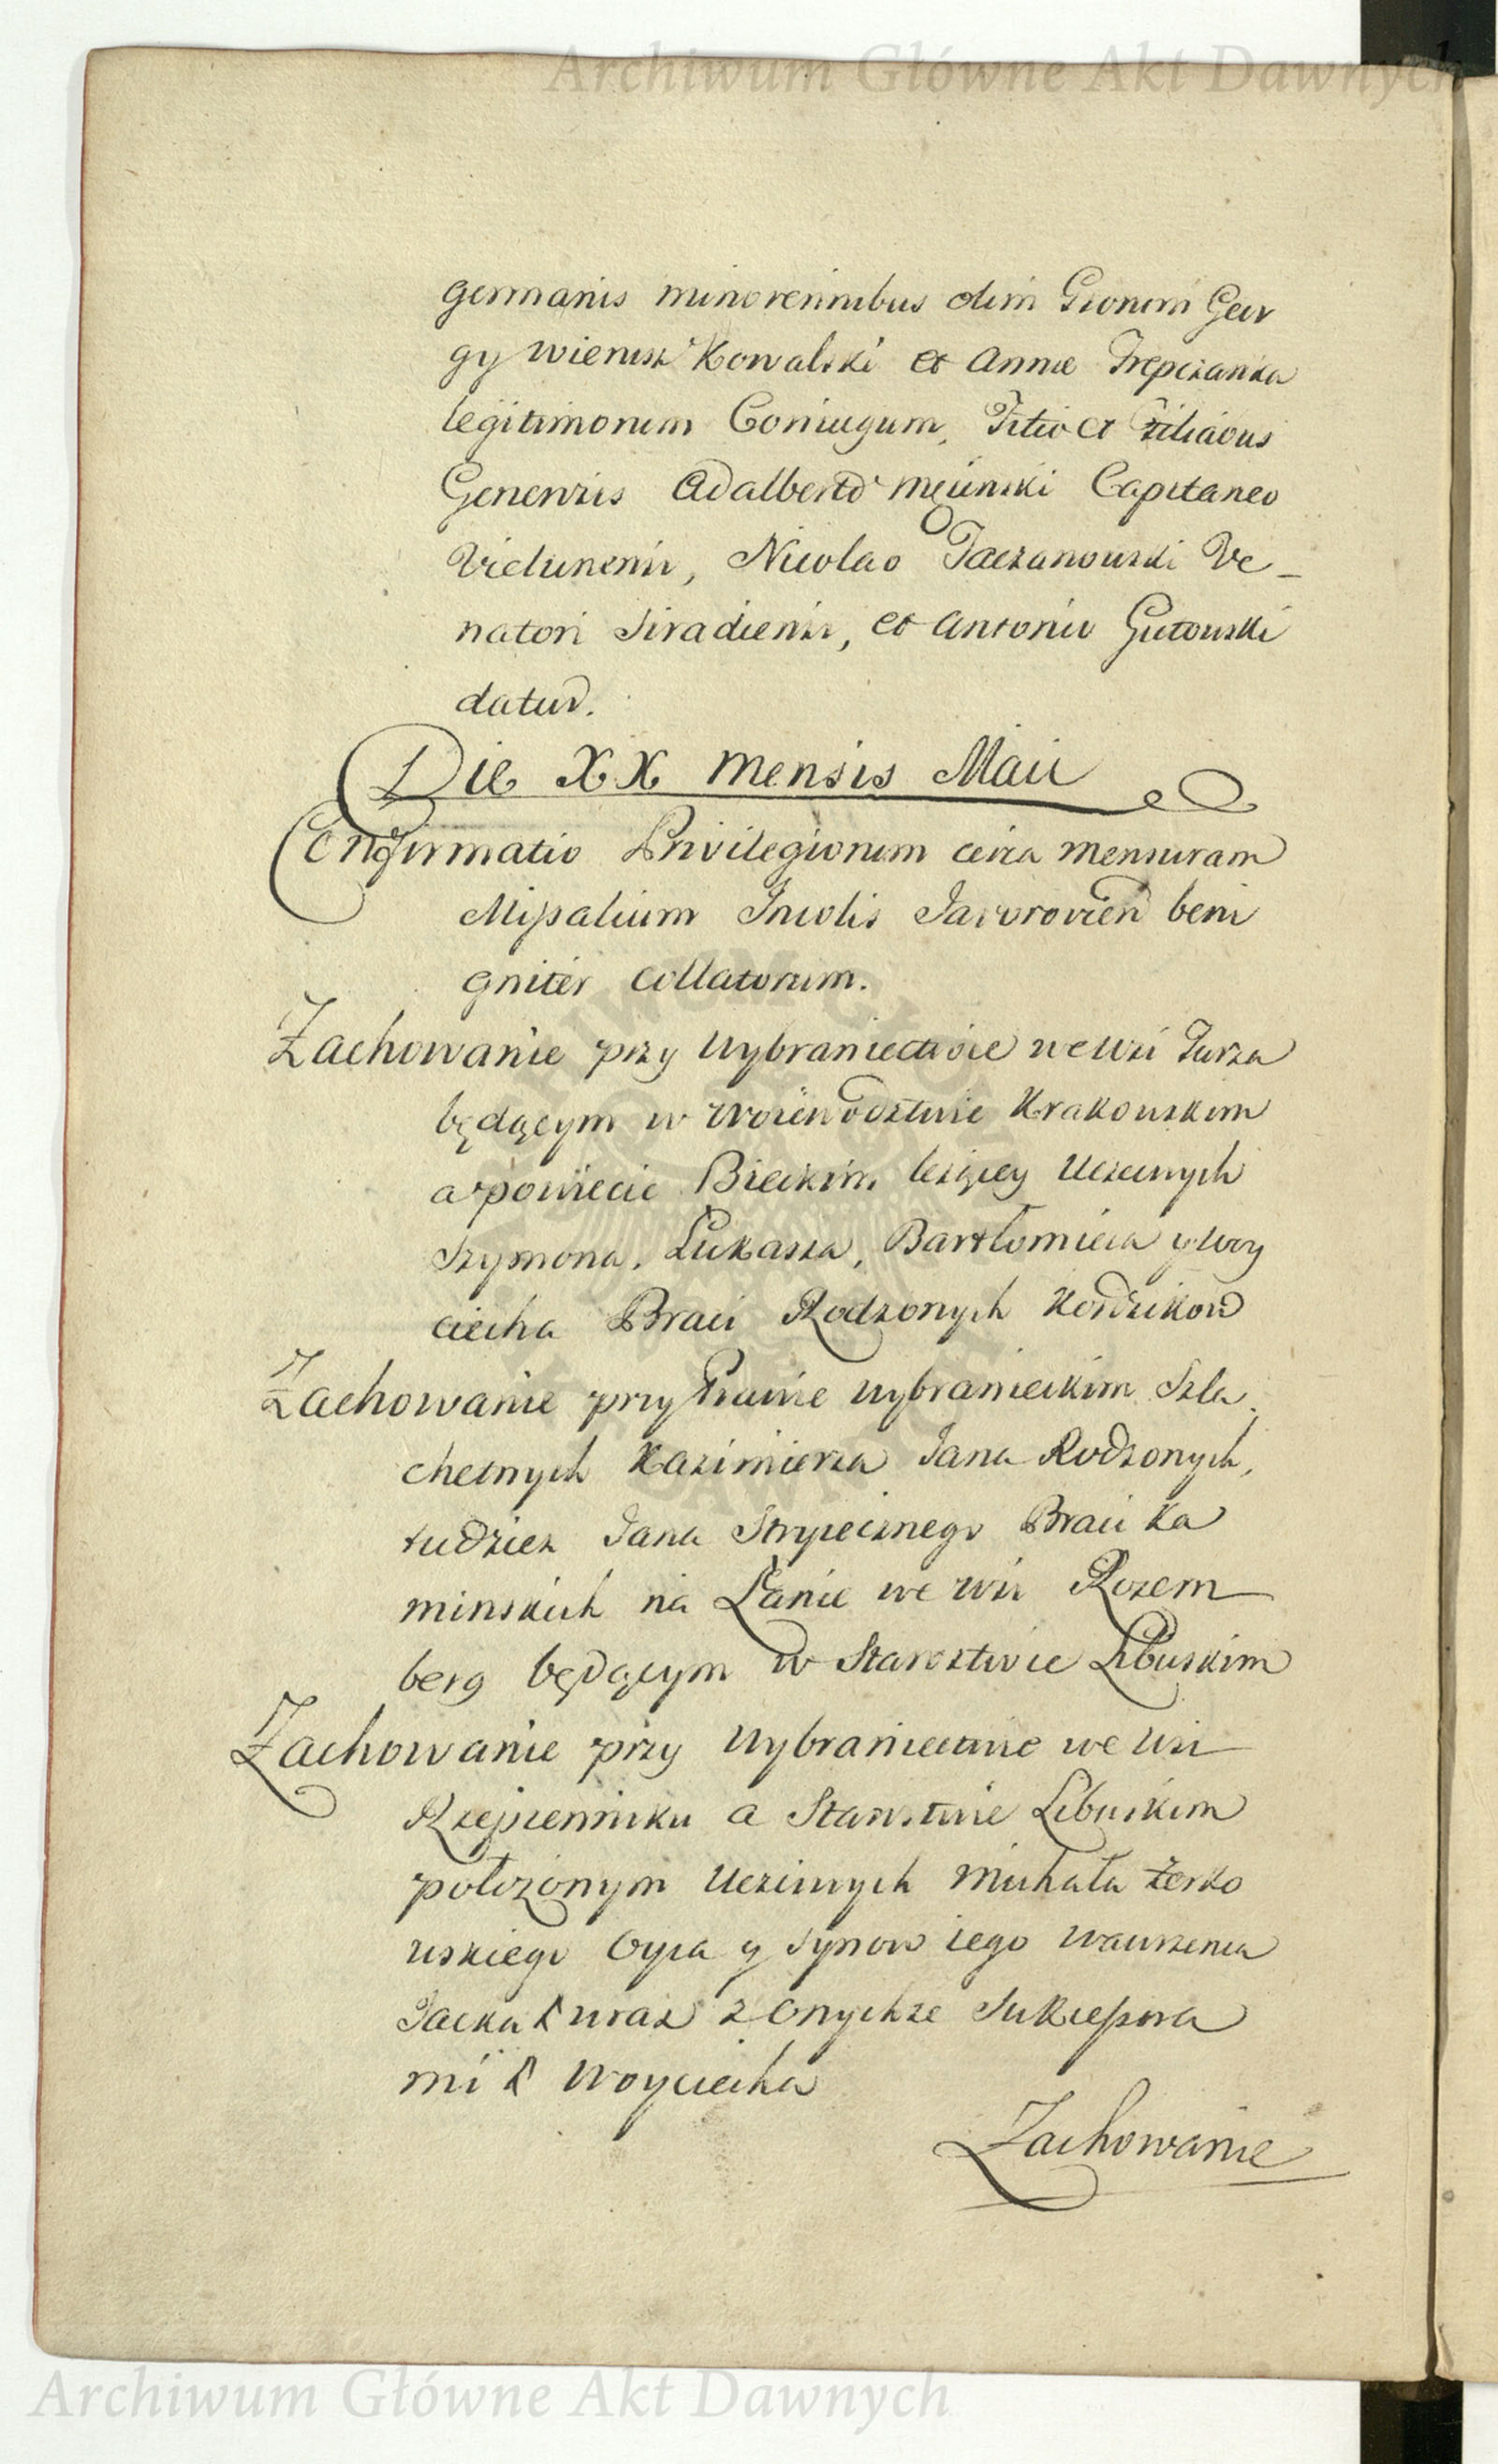 Archiwum Główne Akt Dawnych
germanis minorennibus olim Gronum Geor
gy Wierusz Kowalski et Annæ Trepczanka
legitimorum Coniugum, Filio et Filiabus
Generosis Adalberto Męcinski Capitaneo
Vielunensi, Nicolao Taczanowski Ve_
natori Siradiensi, et Antonio Gutowski
datur.
Die XX mensis Maii
Confirmatio Privilegiorum circa mensuram
Missalium Incolis Javorovien beni
gniter collatorum.
Zachowanie przy Wybraniectwie we Wsi Turza
będącym w Woiewodztwie Krakowskim
a powiecie Bieckim leżącey Uczciwych
Szymona, Lukasza, Bartłomieia y Woy
ciecha Braci Rodzonych
Zachowanie przy Prawie Wybranieckim Szla.
chetnych Kazimierza Jana Rodzonych,
tudziez Jana Stryiecznego Braci Ka
minskich na Łanie we wsi Rozem
berg będącym w Starostwie Libuskim
Zachowanie przy Wybraniectwie we Wsi
Rzepienniku a Starostwie Libuskim
położonym Uczciwych Michała Żerko
wskiego Oyca y Synow iego Wawrzenca
Jacka & wraz z Onychże Sukcessora
mi & Woyciecha
Zachowanie
Archiwum Główne Akt Dawnych